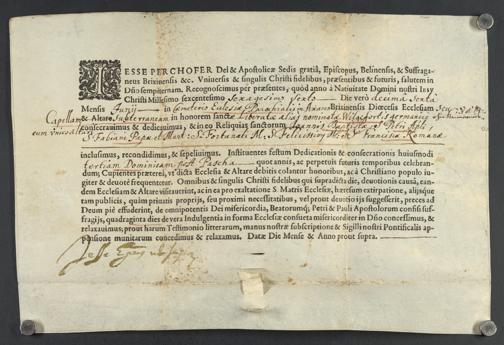 IESSE PERCHOFER Dei & Apostolicæ Sedis gratiâ, Episcopus, Belinensis, & Suffraga-
neus Brixinensis &c. Vniversis & singulis Christi fidelibus, præsentibus & futuris, salutem in
Dño sempiternam. Recognoscimus per præsentes, quòd anno à Nativitate Domini nostri IESV
Christi Millesimo sexcentesimo Sexagesimo Sexto Die verò decima Sexta
Mensis Junij in Cœmeterio Ecclesiæ Parochialis in Brixinensis Diœcesis Ecclesiam
Capellam & Altare Subterraneum in honorem sanctæ Liberatæ aliàs nominatæ Wilgefortis
consecravimus & dedicavimus, & in eo Reliquias sanctorum Joannis Baptistæ Petri
S. Fabiani Papæ et Mart. S. Fortunati M. S. Felicis Franciscæ Romanæ
inclusimus, recondidimus, & sepelivimus. Instituentes festum Dedicationis & consecrationis huiusmodi
tertiam Dominicam post Pascha quot annis, ac perpetuis futuris temporibus celebran-
dum; Cupientes præterei, vt dicta Ecclesia & Altare debitis colantur honoribus, ac à Christiano populo iu-
giter & devotè frequentetur. Omnibus & singulis Christi fidelibus qui supradictis die, devotionis causâ, ean-
dem Ecclesiam & Altare visitaverint, ac in ea pro exaltatione S. Matris Ecclesiæ, hæresum extirpatione, aliisque
tam publicis, quàm privatis proprijs, seu proximi necessitatibus, vel prout devotio ijs suggesserit, preces ad
Deum piè effuderint, de omnipotentis Dei misericordia, Beatorumq; Petri & Pauli Apostolorum confisi suf-
fragijs, quadraginta dies de vera Indulgentia in forma Ecclesiæ consueta misericorditer in Dño concessimus, &
relaxavimus; prout harum Testimonio litterarum, manus nostræ subscriptione & Sigilli nostri Pontificalis ap-
pensione munitarum concedimus & relaxamus. Datæ Die Mense & Anno prout supra.